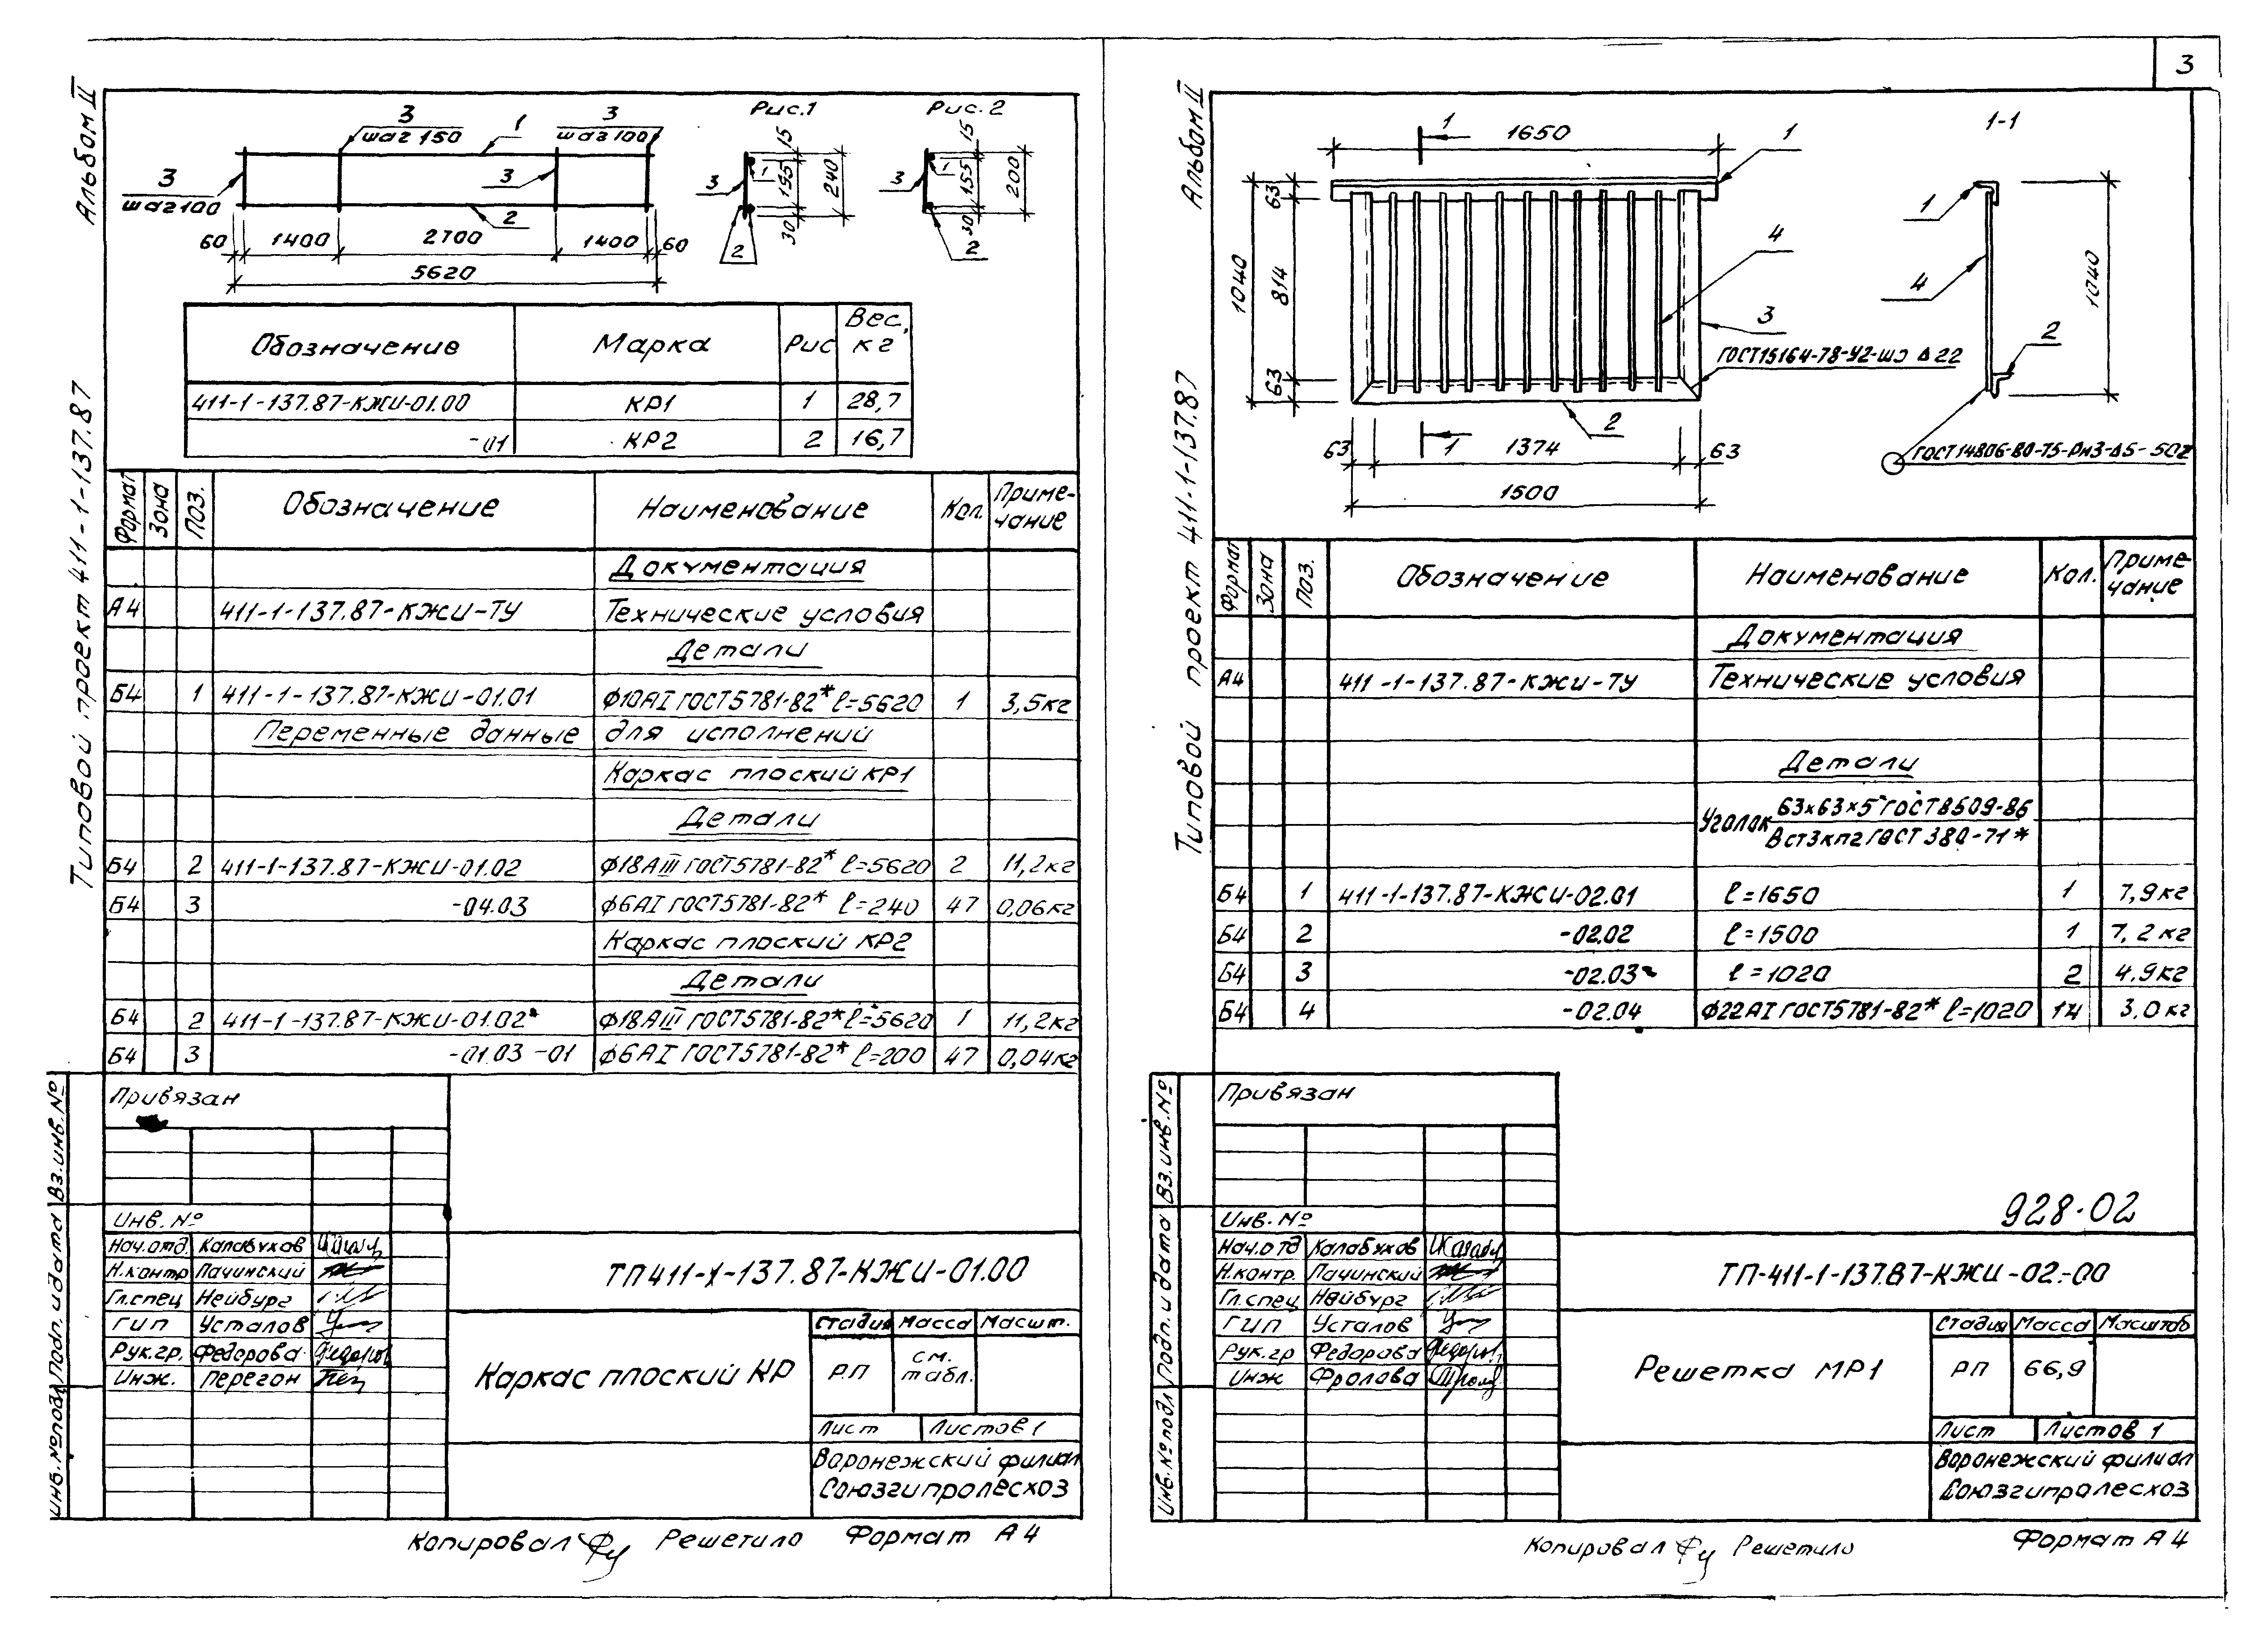 3
Альбом II
Типовой проект 411-1-137.87
3
шаг 150
1
3
шаг 100
3
шаг 100
3
2
60
1400
2700
1400
60
5620
Рис.1
3
1
15
195
30
240
2
Рис. 2
3
1
15
155
30
200
2
Обозначение Марка Рис Вес, кг
411-1-137.87-КЖИ-01.00 КР1 1 28,7
-01 КР2 2 16,7
Формат Зона Поз. Обозначение Наименование Кол. Приме-чание
Документация
А4 411-1-137.87-КЖИ-ТУ Технические условия
Детали
Б4 1 411-1-137.87-КЖИ-01.01 Ф10АI ГОСТ5781-82* ℓ=5620 1 3,5кг
Переменные данные для исполнений
Каркас плоский КР1
Детали
Б4 2 411-1-137.87-КЖИ-01.02 Ф18АIII ГОСТ5781-82* ℓ=5620 2 11,2кг
Б4 3 -04.03 Ф6АI ГОСТ5781-82* ℓ=240 47 0,06кг
Каркас плоский КР2
Детали
Б4 2 411-1-137.87-КЖИ-01.02* Ф18АIII ГОСТ5781-82* ℓ=5620 1 11,2кг
Б4 3 -01.03 -01 Ф6АI ГОСТ5781-82* ℓ=200 47 0,04кг
Привязан
Инв. №
Нач.отд Калабухов
Н.контр Пачинский
Гл.спец Нейбург
ГИП Усталов
Рук.гр. Федорова
Инж. Перегон
ТП411-1-137.87-КЖИ-01.00
Каркас плоский КР
Стадия Масса Масшт.
РП см. табл.
Лист Листов 1
Воронежский филиал
Союзгипролесхоз
Инв.№подл Подп. и дата Вз.инв.№
Копировал Решетило Формат А4
Альбом II
Типовой проект 411-1-137.87
1
1650
1
63
1040
814
63
4
3
ГОСТ15164-78-У2-шэ Δ22
2
63
1
1374
63
1500
1-1
1
4
1040
2
ГОСТ14806-80-Т5-РнЗ-Δ5-50Z
Формат Зона Поз. Обозначение Наименование Кол. Приме-чание
Документация
А4 411-1-137.87-КЖИ-ТУ Технические условия
Детали
Уголок 63х63х5 ГОСТ8509-86
ВСт3кп2 ГОСТ 380-71*
Б4 1 411-1-137.87-КЖИ-02.01 ℓ=1650 1 7,9кг
Б4 2 -02.02 ℓ=1500 1 7,2кг
Б4 3 -02.03 ℓ=1020 2 4,9кг
Б4 4 -02.04 Ф22АI ГОСТ5781-82* ℓ=1020 14 3,0кг
Привязан
928-02
Инв. №
Нач.отд Калабухов
Н.контр. Пачинский
Гл.спец Нейбург
ГИП Усталов
Рук.гр Федорова
Инж Фролова
ТП-411-1-137.87-КЖИ-02.-00
Решетка МР1
Стадия Масса Масштаб
РП 66,9
Лист Листов 1
Воронежский филиал
Союзгипролесхоз
Инв.№подл Подп. и дата Вз.инв.№
Копировал Решетило Формат А4